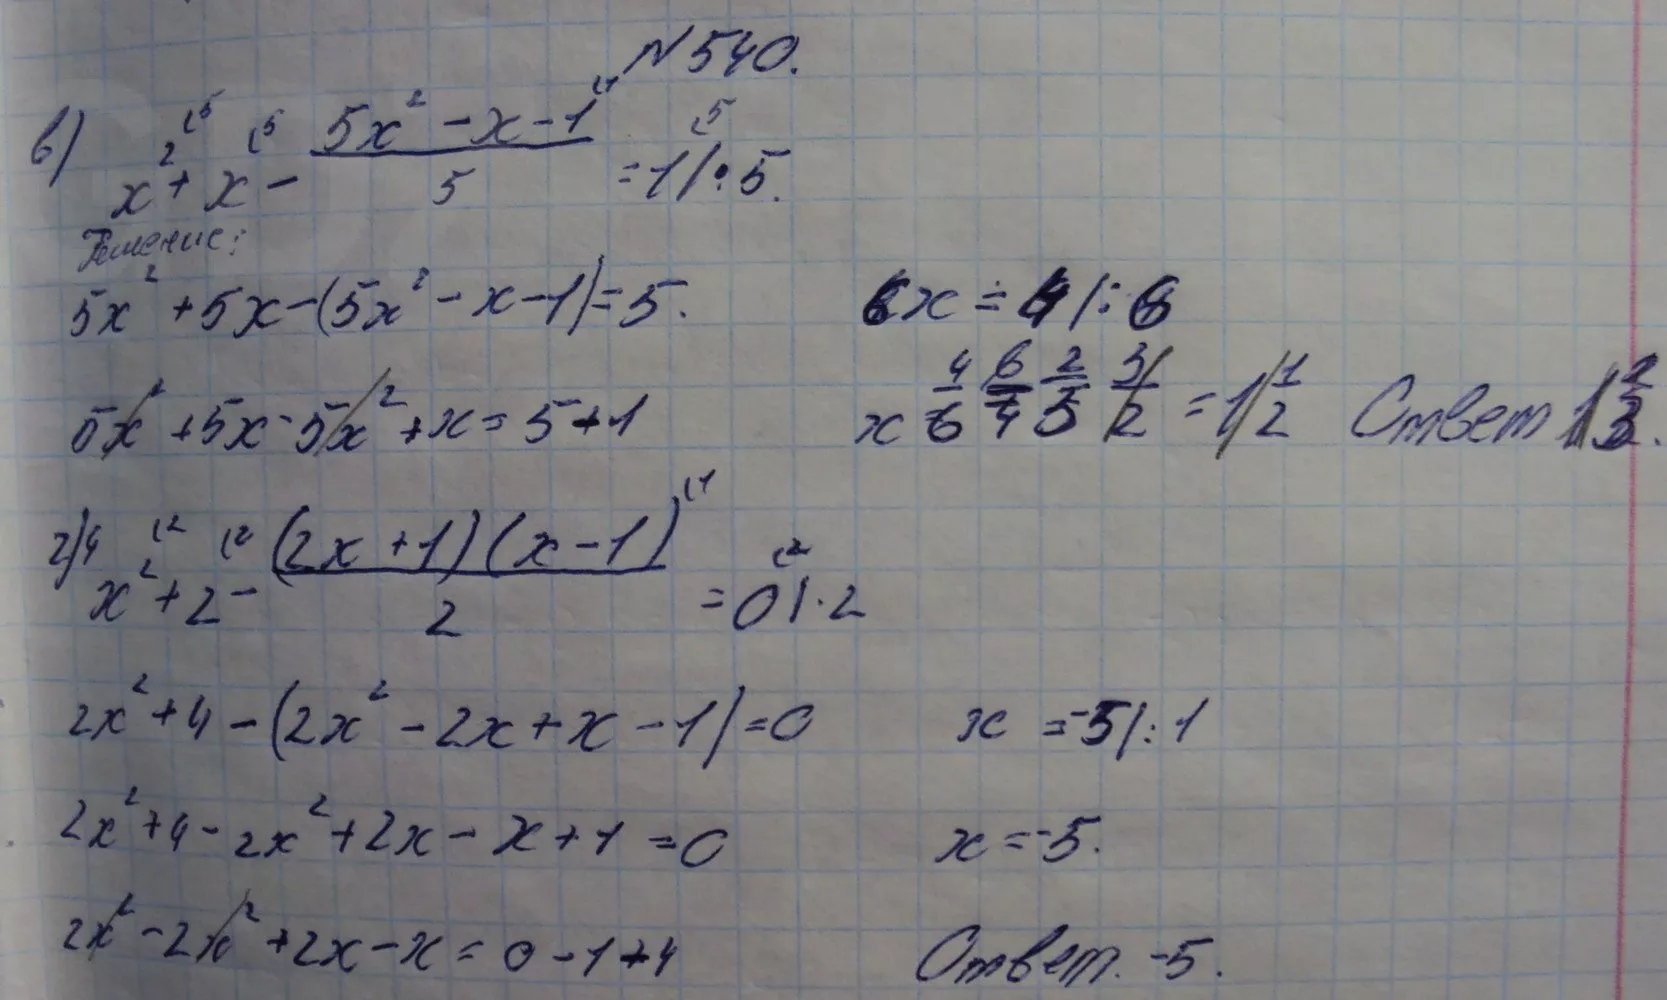 N 540.
в) x² + x - (5x² - x - 1)/5 = 1 | · 5.
Решение:
5x² + 5x - (5x² - x - 1) = 5.
5x² + 5x - 5x² + x = 5 + 1
6x = 4 | : 6
x 4/6 2/3 = 1 1/2 Ответ 2/3.
г) x² + 2 - (2x + 1)(x - 1)/2 = 0 | · 2
2x² + 4 - (2x² - 2x + x - 1) = 0
2x² + 4 - 2x² + 2x - x + 1 = 0
2x² - 2x² + 2x - x = 0 - 1 + 4
x = -5 | : 1
x = -5.
Ответ. -5.